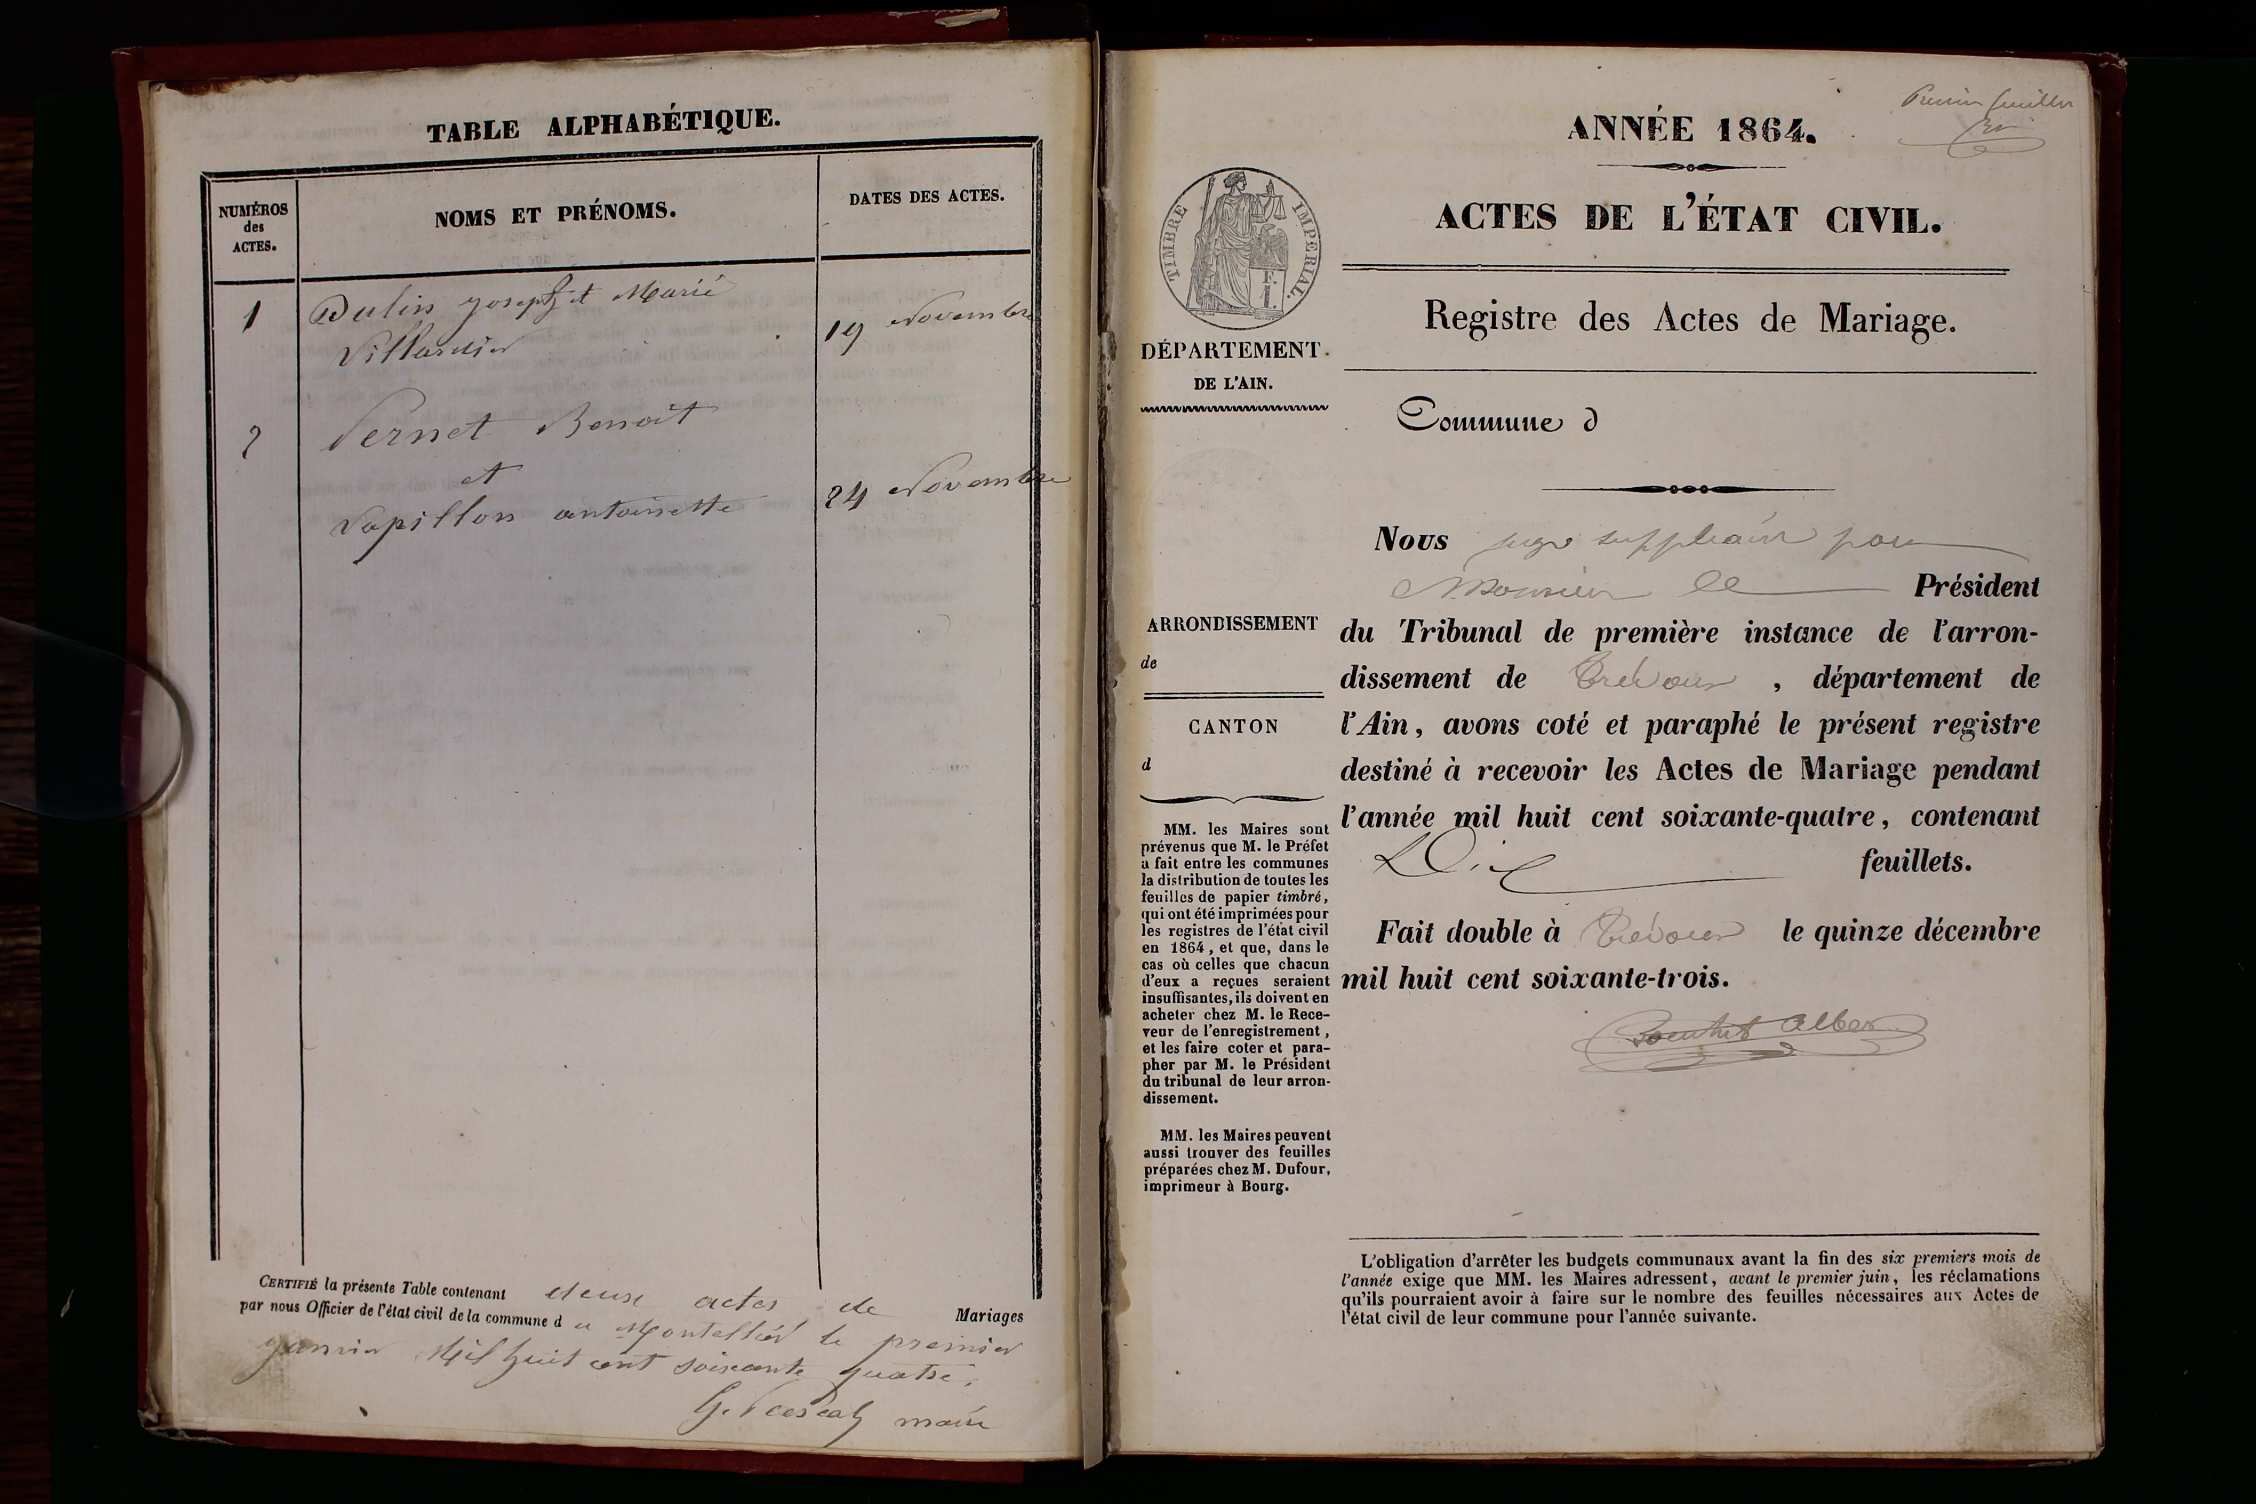 TABLE ALPHABÉTIQUE.
NUMÉROS
des
ACTES.
NOMS ET PRÉNOMS.
DATES DES ACTES.
1
Dulin joseph et Marie
Villardier
19 Novembre
2
Pernet Benoit
et
Papillon antoinette
24 Novembre
CERTIFIÉ la présente Table contenant deux actes de Mariages
par nous Officier de l'état civil de la commune d u Montellier le premier
janvier Mil huit cent soixante quatre.
maire
Premier feuillet
ANNÉE 1864.
ACTES DE L'ÉTAT CIVIL.
Registre des Actes de Mariage.
TIMBRE IMPÉRIAL.
F.
1.
DÉPARTEMENT
DE L'AIN.
Commune d
ARRONDISSEMENT
de
CANTON
d
MM. les Maires sont
prévenus que M. le Préfet
a fait entre les communes
la distribution de toutes les
feuilles de papier timbré,
qui ont été imprimées pour
les registres de l'état civil
en 1864, et que, dans le
cas où celles que chacun
d'eux a reçues seraient
insuffisantes, ils doivent en
acheter chez M. le Rece-
veur de l'enregistrement,
et les faire coter et para-
pher par M. le Président
du tribunal de leur arron-
dissement.
MM. les Maires peuvent
aussi trouver des feuilles
préparées chez M. Dufour,
imprimeur à Bourg.
Nous juge suppléant pour
Monsieur le Président
du Tribunal de première instance de l'arron-
dissement de Trévoux, département de
l'Ain, avons coté et paraphé le présent registre
destiné à recevoir les Actes de Mariage pendant
l'année mil huit cent soixante-quatre, contenant
Dix feuillets.
Fait double à Trévoux le quinze décembre
mil huit cent soixante-trois.
L'obligation d'arrêter les budgets communaux avant la fin des six premiers mois de
l'année exige que MM. les Maires adressent, avant le premier juin, les réclamations
qu'ils pourraient avoir à faire sur le nombre des feuilles nécessaires aux Actes de
l'état civil de leur commune pour l'année suivante.